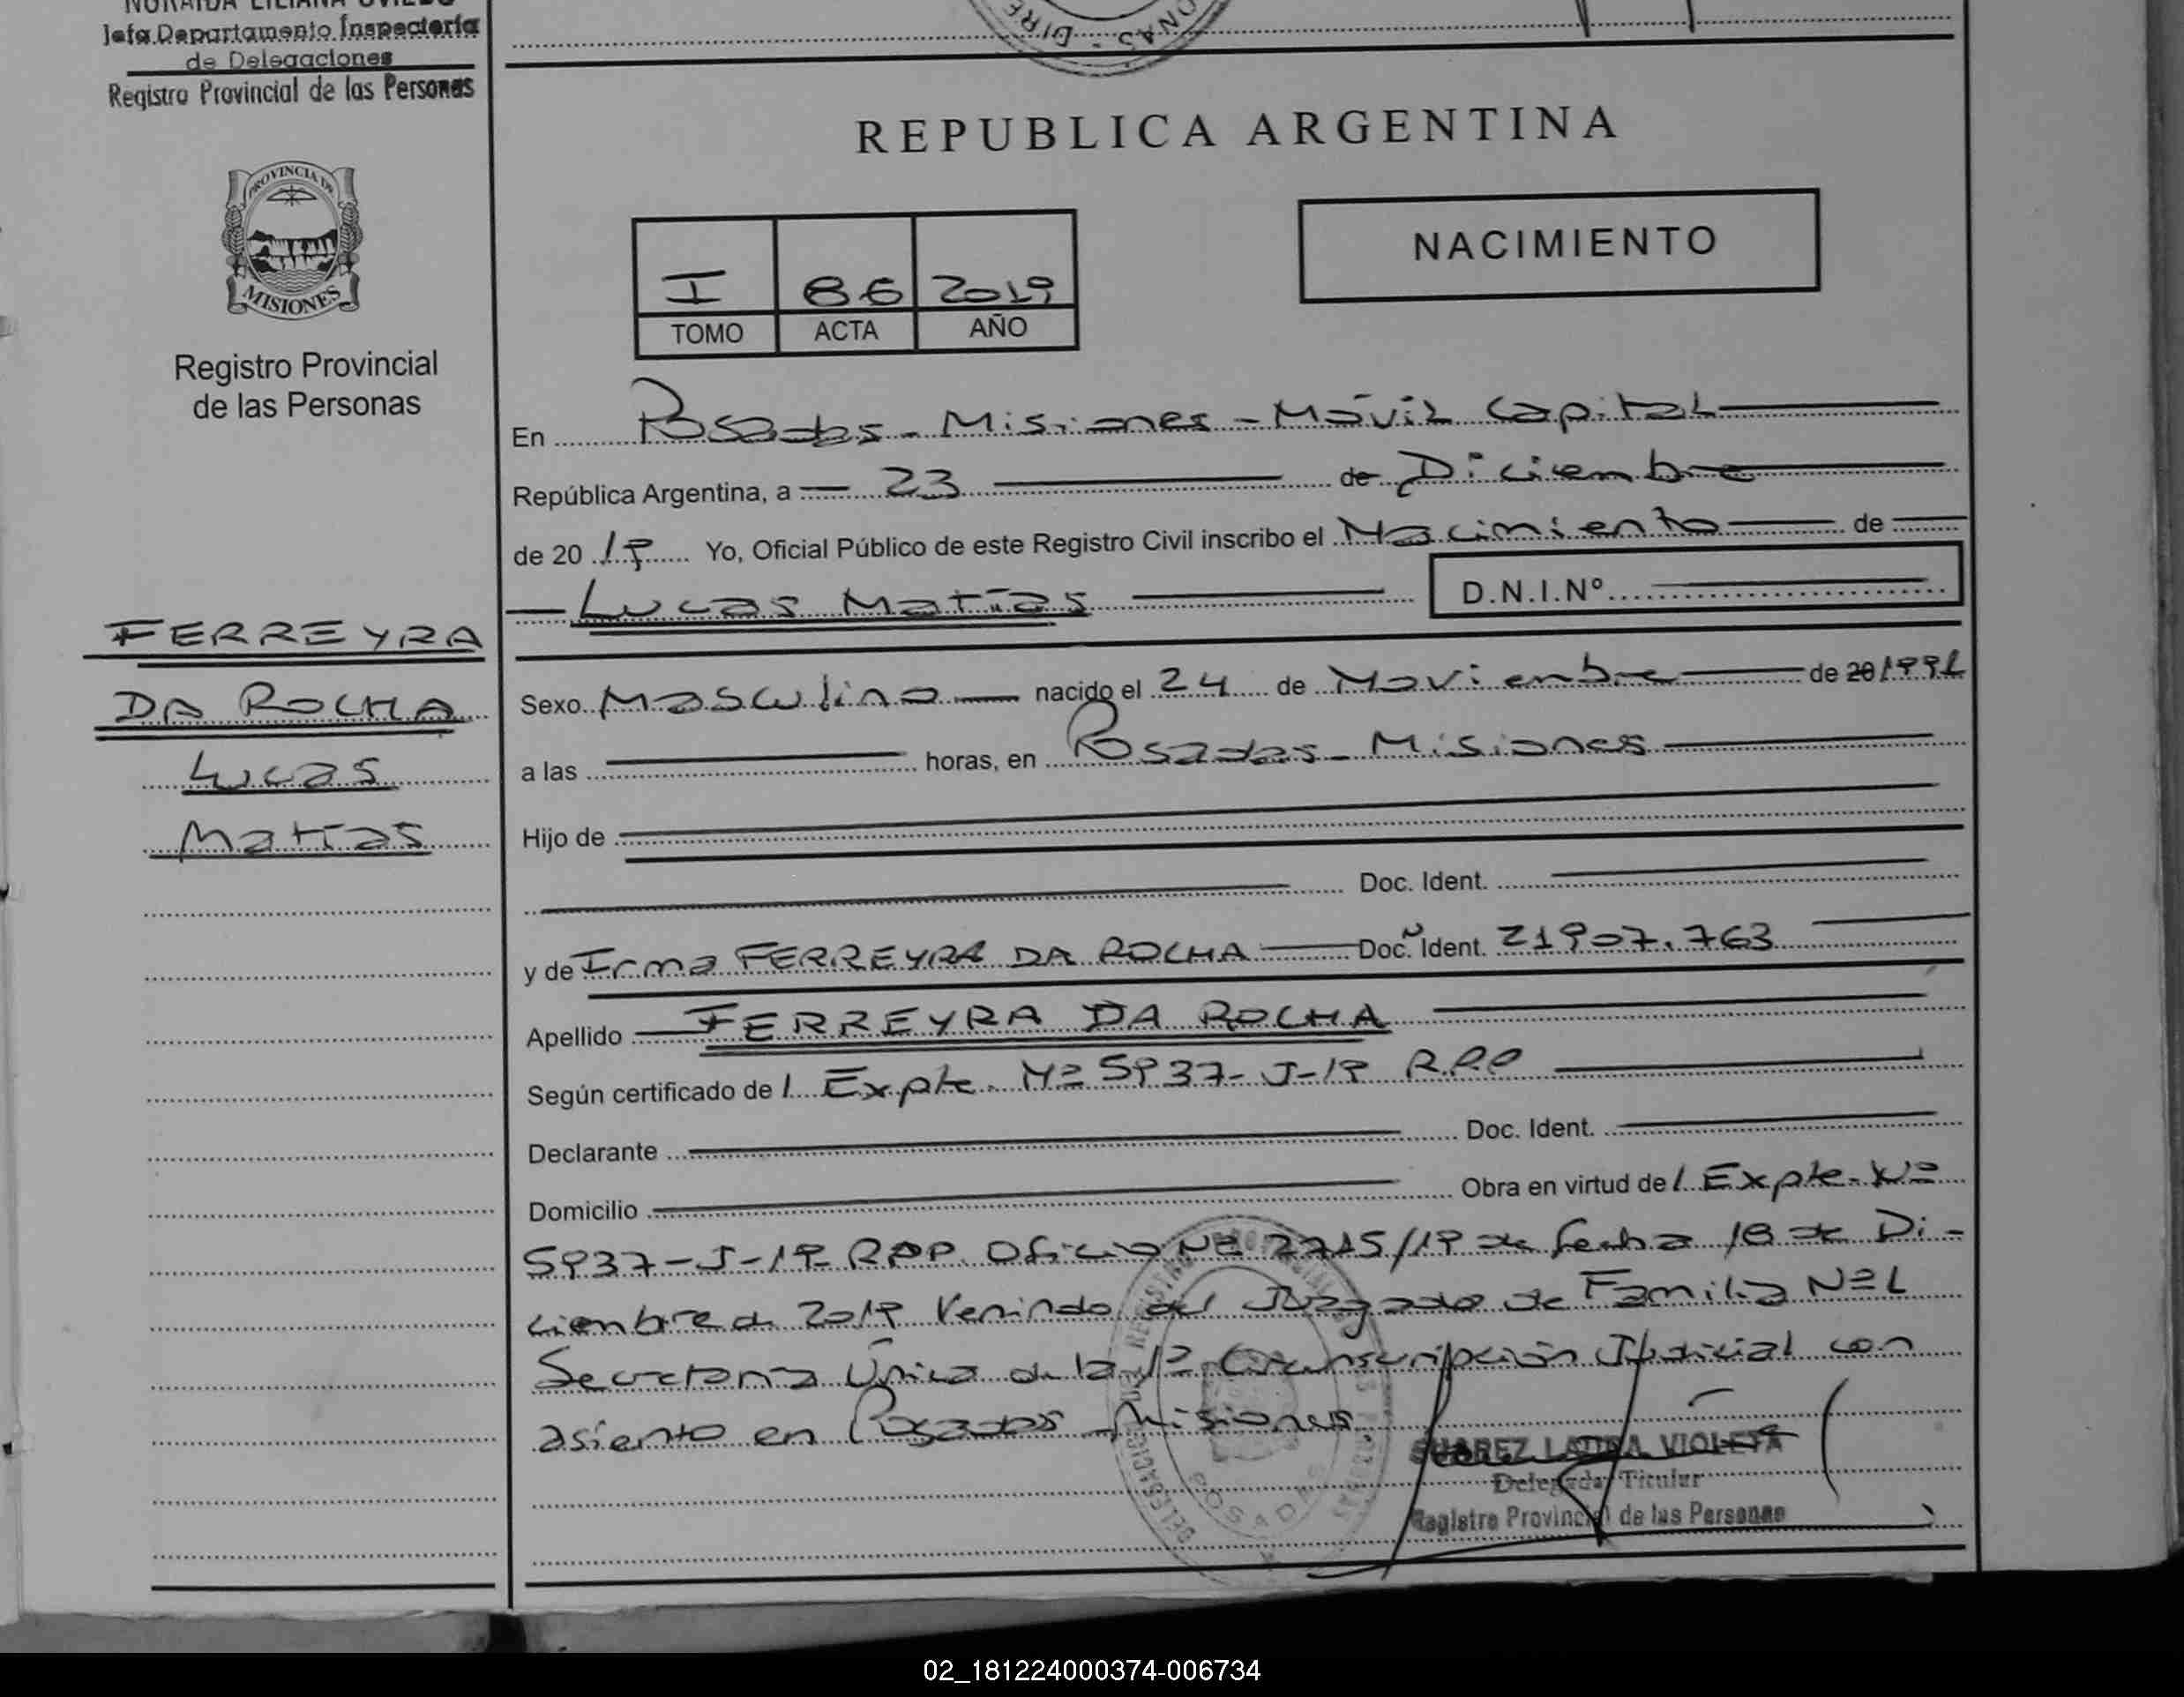 NORAIDA LILIANA OVIEDO
Jefa Departamento Inspectoría
de Delegaciones
Registro Provincial de las Personas
PROVINCIA DE
MISIONES
Registro Provincial
de las Personas
FERREYRA
DA ROCHA
Lucas
Matías
REPUBLICA ARGENTINA
I 86 2019
TOMO ACTA AÑO
NACIMIENTO
En Posadas - Misiones - Móvil Capital
República Argentina, a 23 de Diciembre
de 20 19 Yo, Oficial Público de este Registro Civil inscribo el Nacimiento de
Lucas Matías D.N.I.Nº
Sexo Masculino nacido el 24 de Noviembre de 20 1991
a las horas, en Posadas - Misiones
Hijo de
Doc. Ident.
y de Irma FERREYRA DA ROCHA Doc. Ident. 21907.763
Apellido FERREYRA DA ROCHA
Según certificado de / Expte. Nº 5937-J-19 R.P.P
Declarante Doc. Ident.
Domicilio Obra en virtud de / Expte. Nº
5937-J-19 RPP. Oficio Nº 2715/19 de fecha 18 de Di-
ciembre de 2019 Venindo del Juzgado de Familia Nº1
Secretaria Única de la 1º Circunscripción Judicial con
asiento en Posadas Misiones.
SUAREZ LAURA VIOLETA
Delegada Titular
Registro Provincial de las Personas
POSADAS
02_181224000374-006734